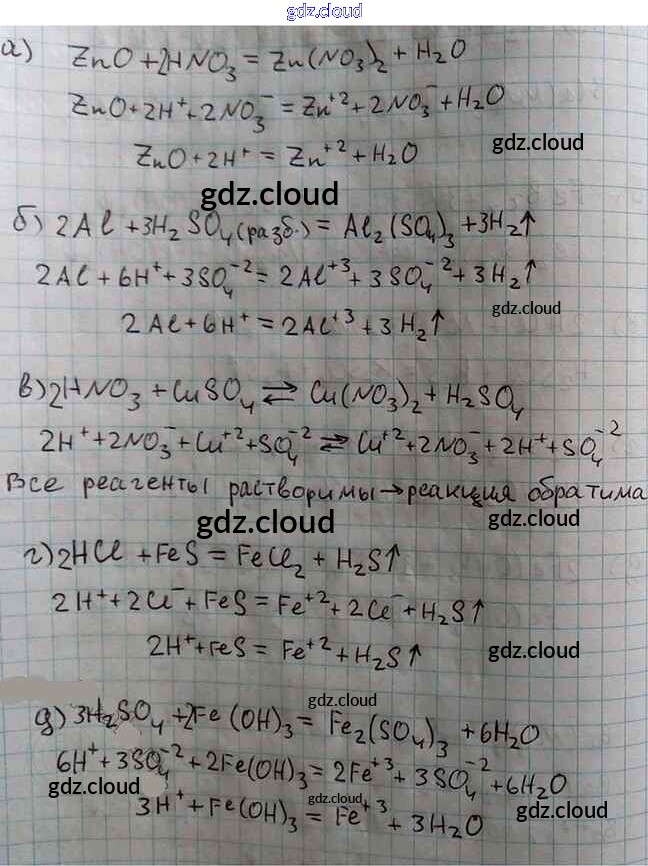 gdz.cloud
а) ZnO + 2HNO₃ = Zn(NO₃)₂ + H₂O
ZnO + 2H⁺ + 2NO₃⁻ = Zn⁺² + 2NO₃⁻ + H₂O
gdz.cloud
ZnO + 2H⁺ = Zn⁺² + H₂O
gdz.cloud
б) 2Al + 3H₂SO₄(разб.) = Al₂(SO₄)₃ + 3H₂↑
2Al + 6H⁺ + 3SO₄⁻² = 2Al⁺³ + 3SO₄⁻² + 3H₂↑
gdz.cloud
2Al + 6H⁺ = 2Al⁺³ + 3H₂↑
в) 2HNO₃ + CuSO₄ ⇄ Cu(NO₃)₂ + H₂SO₄
2H⁺ + 2NO₃⁻ + Cu⁺² + SO₄⁻² ⇄ Cu⁺² + 2NO₃⁻ + 2H⁺ + SO₄⁻²
Все реагенты растворимы → реакция обратима
gdz.cloud gdz.cloud
г) 2HCl + FeS = FeCl₂ + H₂S↑
2H⁺ + 2Cl⁻ + FeS = Fe⁺² + 2Cl⁻ + H₂S↑
2H⁺ + FeS = Fe⁺² + H₂S↑
gdz.cloud
gdz.cloud
д) 3H₂SO₄ + 2Fe(OH)₃ = Fe₂(SO₄)₃ + 6H₂O
6H⁺ + 3SO₄⁻² + 2Fe(OH)₃ = 2Fe⁺³ + 3SO₄⁻² + 6H₂O
gdz.cloud gdz.cloud gdz.cloud
3H⁺ + Fe(OH)₃ = Fe⁺³ + 3H₂O